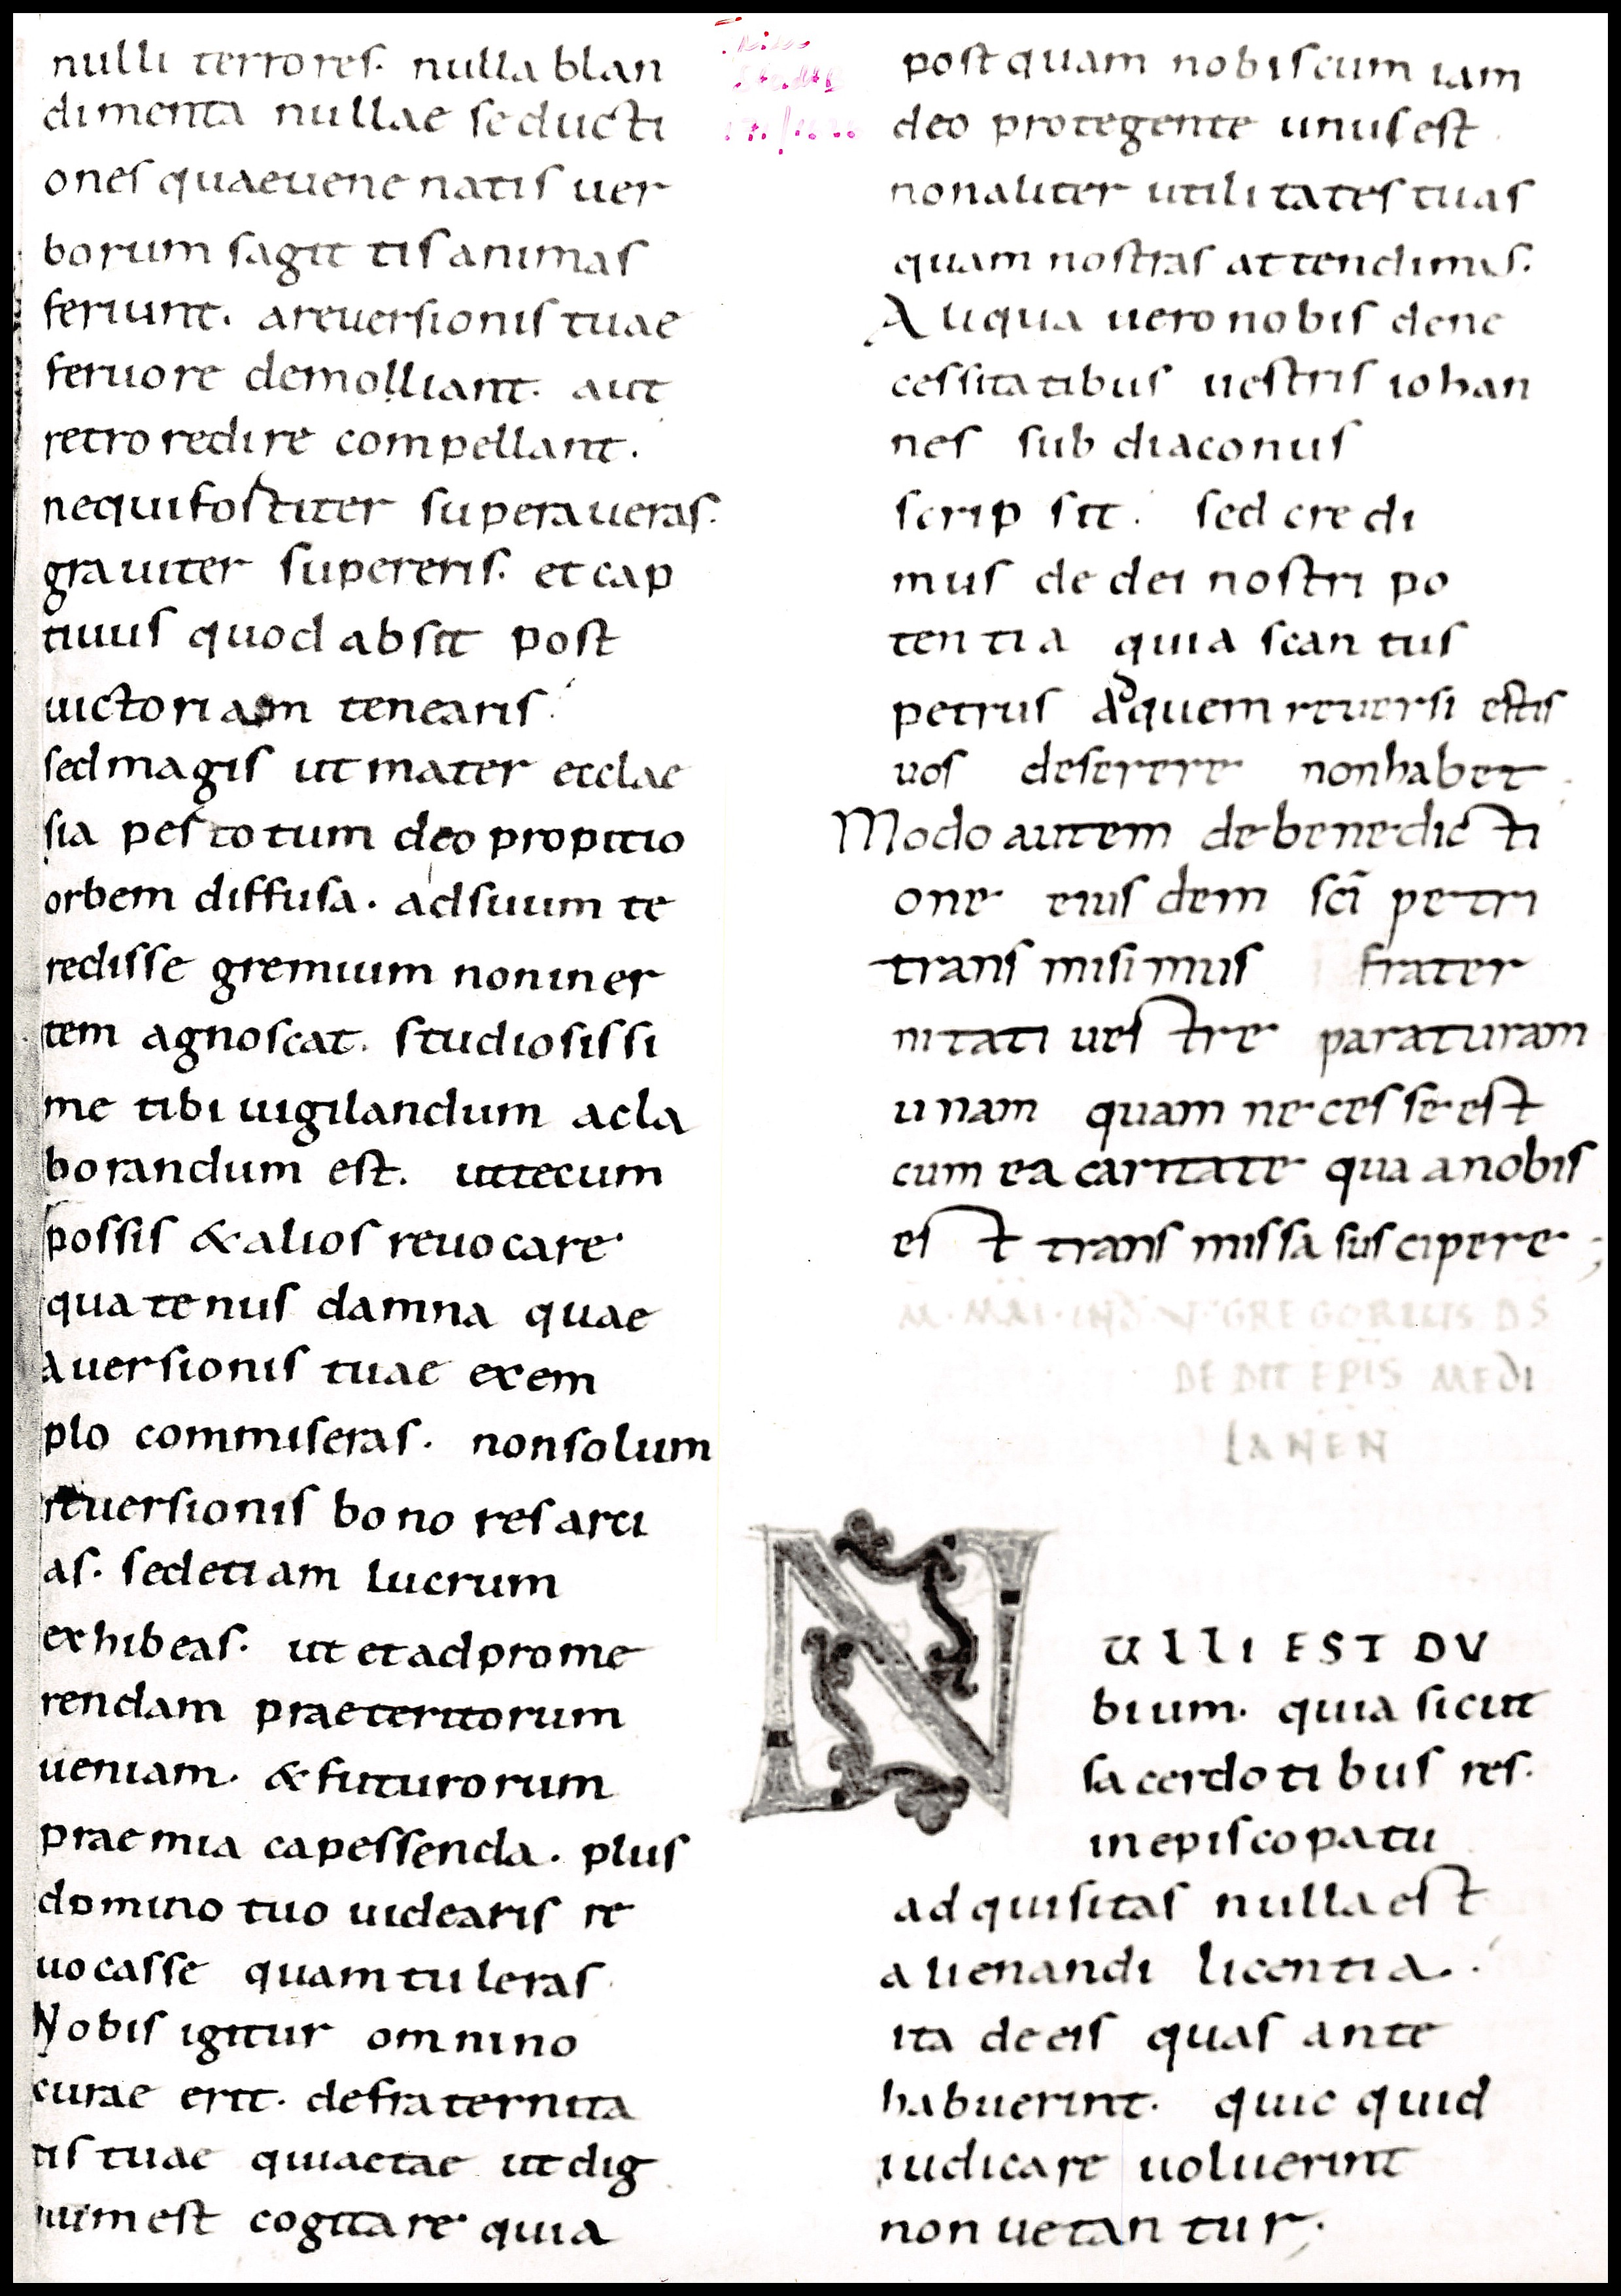 nulli terrores. nulla blan
dimenta nullae seducti
ones quae uenenatis uer
borum sagittis animas
feriunt. a reuersionis tuae
feruore demolliant. aut
retro redire compellant.
ne qui fostiter superaueras.
grauiter supereris. et cap
tiuus quod absit post
uictoriam tenearis.
sed magis ut mater ecclae
sia pes totum deo propitio
orbem diffusa. ad suum te
redisse gremium non iner
tem agnoscat. studiosissi
me tibi uigilandum acla
borandum est. ut tecum
possis & alios reuocare
quatenus damna quae
auersionis tuae exem
plo commiseras. non solum
reuersionis bono resarci
as. sed etiam lucrum
exhibeas. ut et ad prome
rendam praeteritorum
ueniam. & futurorum
praemia capessenda. plus
domino tuo uidearis re
uocasse quam tuleras.
Nobis igitur omnino
curae erit. de fraternita
tis tuae quiaetae ut dig
num est cogitare quia
postquam nobiscum iam
deo protegente unus est.
non aliter utilitates tuas
quam nostras attendimus.
Aliqua uero nobis de ne
cessitatibus uestris iohan
nes subdiaconus
scripsit. sed credi
mus de dei nostri po
tentia quia scantus
petrus ad quem reuersi estis
uos deserere non habet.
Modo autem de benedicti
one eiusdem sci petri
transmisimus frater
nitati uestre paraturam
unam quam necesse est
cum ea caritate qua a nobis
est transmissa suscipere;
M. MAI. IND V. GREGORIUS DS
DEDIT EPIS MEDI
LANEN
NULLI EST DV
bium. quia sicut
sacerdotibus res.
in episcopatu
adquisitas nulla est
alienandi licentia.
ita de eis quas ante
habuerint. quicquid
iudicare uoluerint
non uetantur;